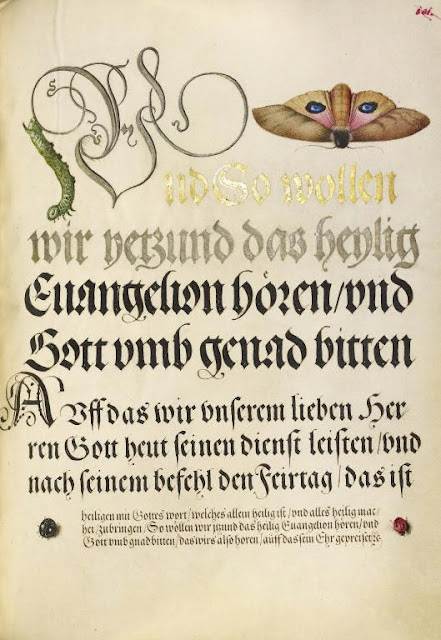 101.
Und So wollen
wir yetzund das heylig
Euangelion hören/vnd
Gott vmb genad bitten
Auff das wir vnserem lieben Her-
ren Gott heut seinen dienst leisten/vnd
nach seinem befehl den Feirtag/das ist
heiligen mit Gottes wort/welches allem heilig ist/vnd alles heilig mac-
het, zubringen/So wöllen wir jtzund das heilig Euangelion hören/vnd
Gott vmb gnad bitten/das wirs also hören/auff das sein Ehr gepreiset